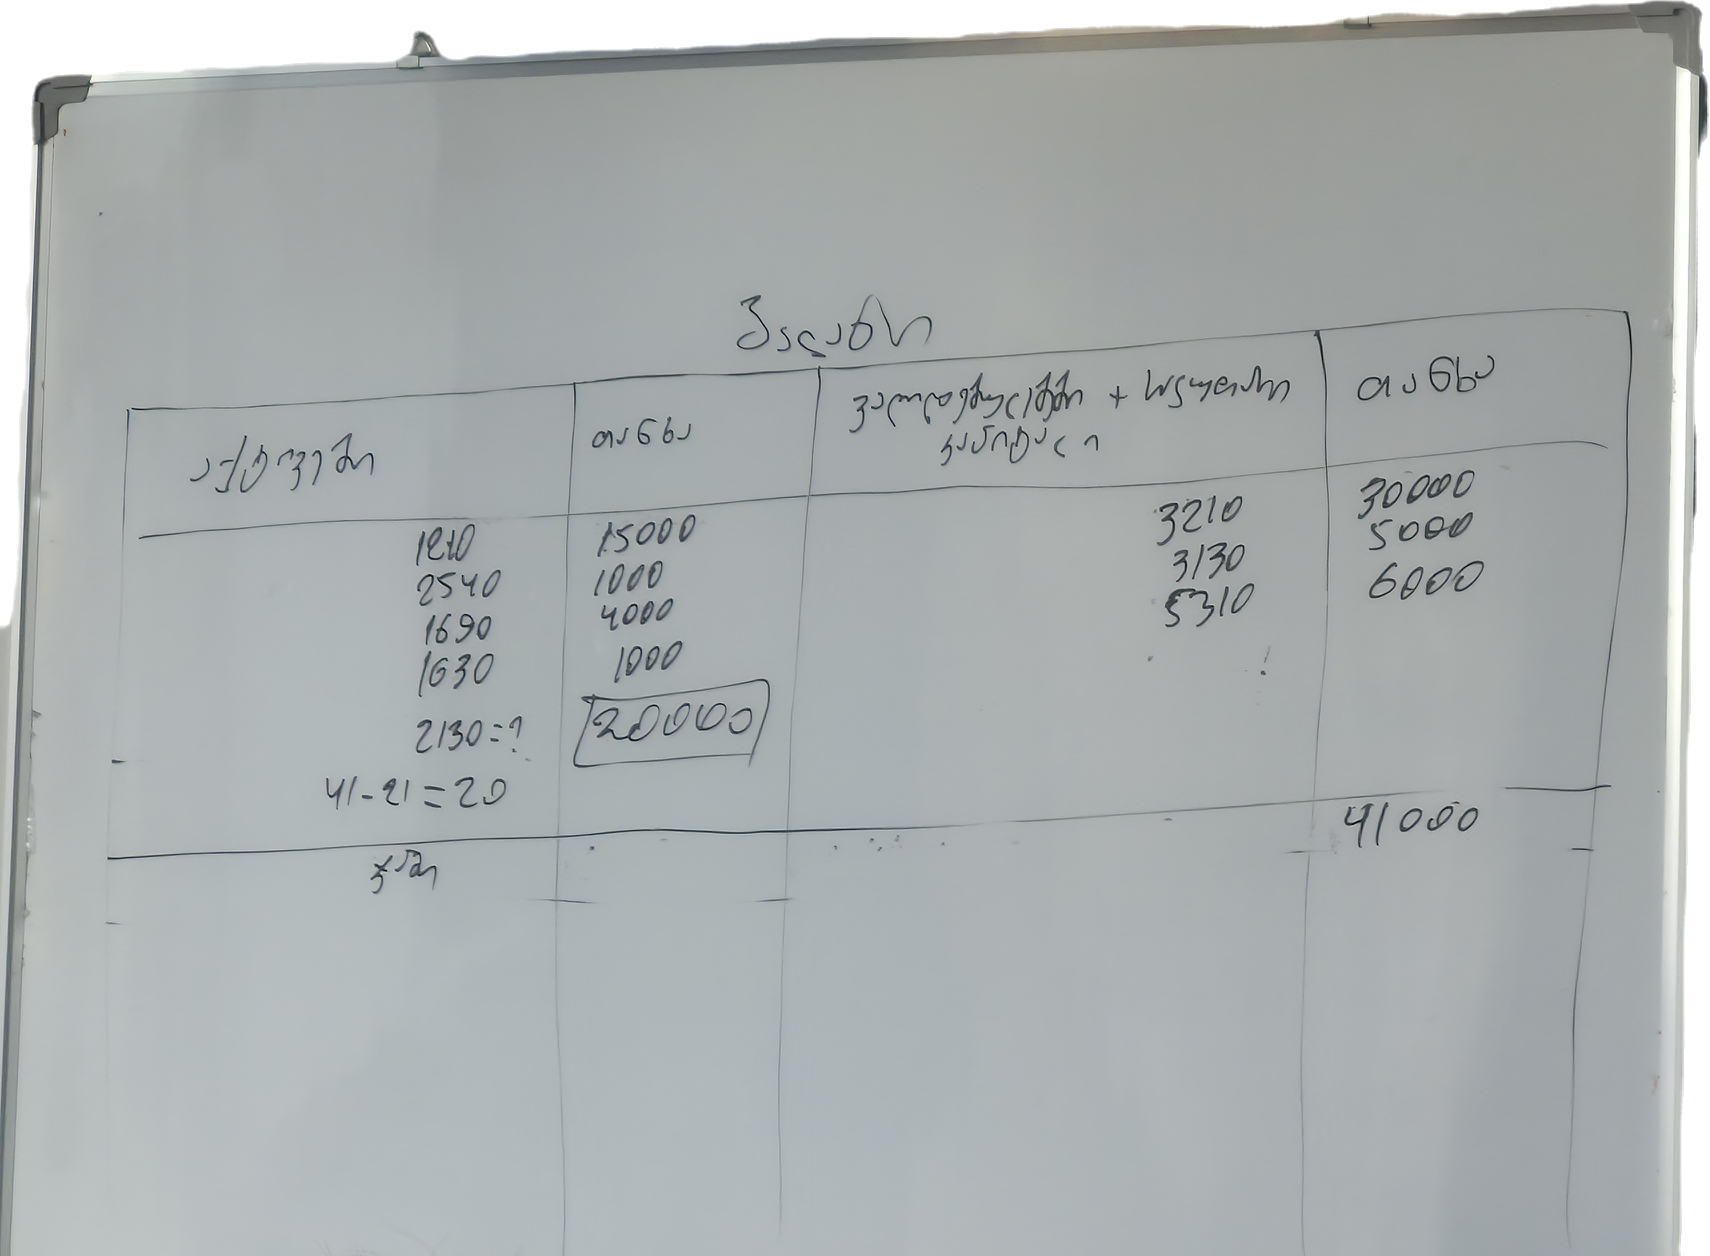 ბალანსი
აქტივები თანხა ვალდებულებები + საკუთარი კაპიტალი თანხა
1210 15000 3210 30000
2540 1000 3130 5000
1690 4000 5310 6000
1630 1000
2130=? 20000
41-21=20
ჯამი 41000